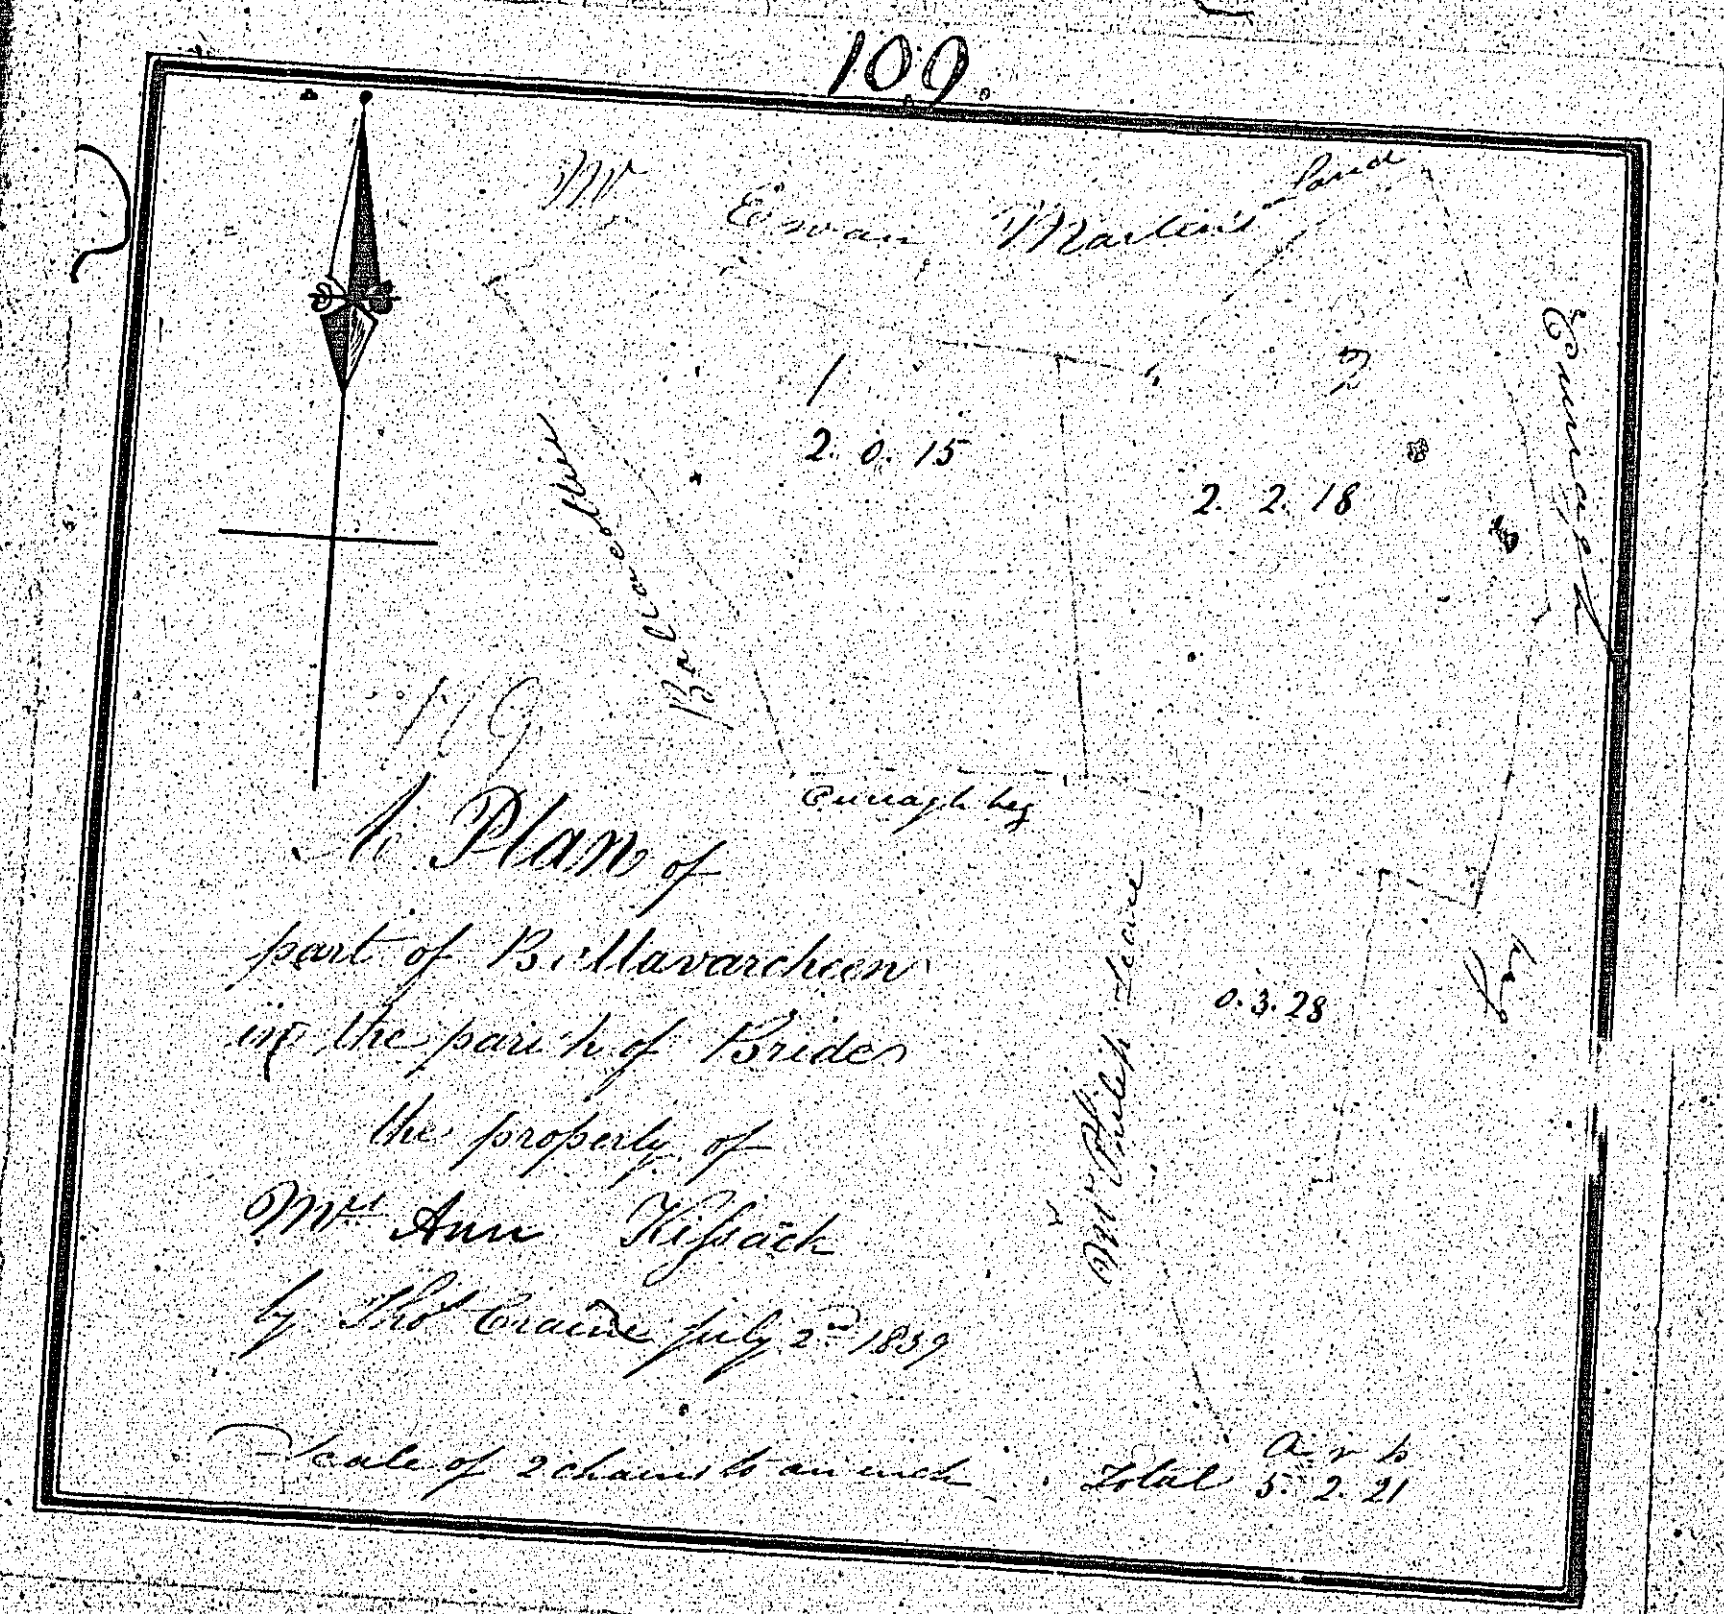 109.
Mr Ewan Martin's Land
1
2. 0. 15
2
2. 2. 18
Curragh
beg
Curragh beg
0. 3. 28
Mr Philip
119
A Plan of
part of Ballavarcheen
in the parish of Bride
the property of
Mrs Ann Kissack
by Thos Craine July 2nd 1839
Scale of 2 chains to an inch
Total
a r p
5. 2. 21